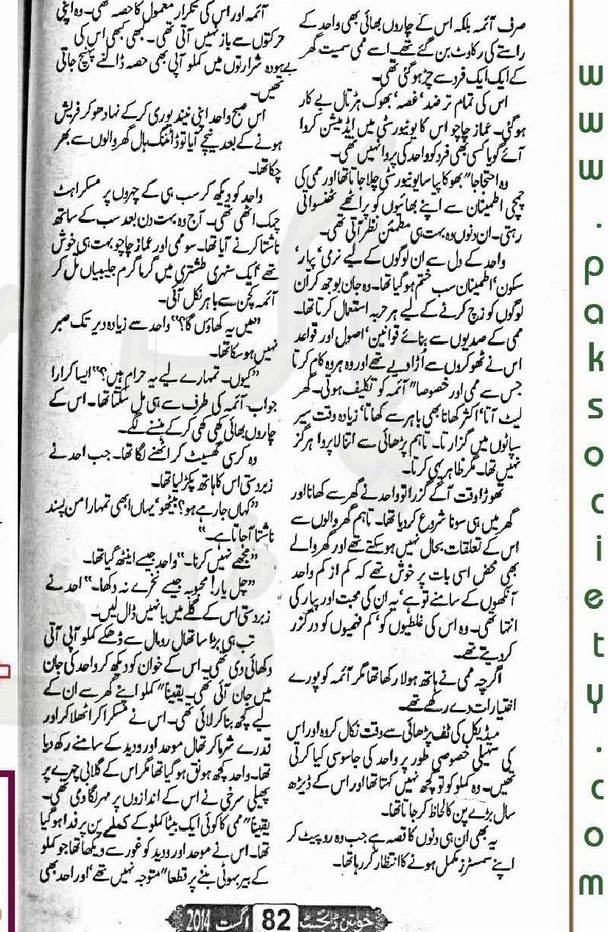 صرف آئمہ بلکہ اس کے چاروں بھائی بھی واحد کے
راستے کی رکاوٹ بن گئے تھے۔ اسے ممی سمیت گھر
کے ایک ایک فرد سے چڑ ہو گئی تھی۔
اس کی تمام تر ضد' غصہ' بھوک ہڑتال بے کار
ہو گئی۔ عماز چاچو اس کا یونیورسٹی میں ایڈمیشن کروا
آئے گویا کسی بھی فرد کو واحد کی پروا نہیں تھی۔
وہ احتجاجا" بھوکا پیاسا یونیورسٹی چلا جاتا تھا اور ممی کی
چچی اطمینان سے اپنے بھائیوں کو پراٹھے ٹھنسواتی
رہتی۔ ان دنوں وہ بہت ہی مطمئن نظر آتی تھی۔
واحد کے دل سے ان لوگوں کے لیے نرمی' پیار'
سکون' اطمینان سب ختم ہو گیا تھا۔ وہ جان بوجھ کر ان
لوگوں کو زچ کرنے کے لیے ہر حربہ استعمال کرتا تھا۔
ممی کے صدیوں سے بنائے قوانین' اصول اور قواعد
اس نے ٹھوکروں سے اڑا دیے تھے اور وہ ہر وہ کام کرتا
جس سے ممی اور خصوصا" آئمہ کو تکلیف ہوتی۔ گھر
لیٹ آتا' اکثر کھانا بھی باہر سے کھاتا' زیادہ وقت سیر
سپاٹوں میں گزارتا۔ تاہم پڑھائی سے اتنا لاپروا ہرگز
نہیں تھا۔ مگر ظاہر یہی کرتا۔
تھوڑا وقت آگے گزرا تو واحد نے گھر سے کھانا اور
گھر میں ہی سونا شروع کر دیا تھا۔ تاہم گھر والوں سے
اس کے تعلقات بحال نہیں ہو سکتے تھے اور گھر والے
بھی محض اسی بات پر خوش تھے کہ کم از کم واحد
آنکھوں کے سامنے تو ہے' یہ ان کی محبت اور پیار کی
انتہا تھی۔ وہ اس کی غلطیوں کو' کم فہمیوں کو درگزر
کر دیتے تھے۔
اگرچہ ممی نے ہاتھ ہولا رکھا تھا مگر آئمہ کو پورے
اختیارات دے رکھے تھے۔
میڈیکل کی ٹف پڑھائی سے وقت نکال کر وہ اور اس
کی سہیلی خصوصی طور پر واحد کی جاسوسی کیا کرتی
تھیں۔ وہ کملو کو تو کچھ نہیں کہتا تھا اور اس کے ڈیڑھ
سال بڑے پن کا لحاظ کر جاتا تھا۔
یہ بھی ان ہی دنوں کا قصہ ہے جب وہ رو پیٹ کر
اپنے سمسٹرز مکمل ہونے کا انتظار کر رہا تھا۔
آئمہ اور اس کی تکرار معمول کا حصہ تھی۔ وہ اپنی
حرکتوں سے باز نہیں آتی تھی۔ کبھی کبھی اس کی
بے ہودہ شرارتوں میں کملو آپی بھی حصہ ڈالنے پہنچ جاتی
تھیں۔
اس صبح واحد اپنی نیند پوری کر کے نہا دھو کر فریش
ہونے کے بعد نیچے آیا تو ڈائننگ ہال گھر والوں سے بھر
چکا تھا۔
واحد کو دیکھ کر سب ہی کے چہروں پر مسکراہٹ
چمک اٹھی تھی۔ آج وہ بہت دن بعد سب کے ساتھ
ناشتا کرنے آیا تھا۔ سو ممی اور عماز چاچو بہت ہی خوش
تھے' ایک سنہری طشتری میں گرما گرم جلیبیاں مل کر
آئمہ کچن سے باہر نکل آئی۔
"میں یہ کھاؤں گا؟" واحد سے زیادہ دیر تک صبر
نہیں ہو سکا تھا۔
"کیوں۔ تمہارے لیے یہ حرام ہیں؟" ایسا کرارا
جواب آئمہ کی طرف سے ہی مل سکتا تھا۔ اس کے
چاروں بھائی کھی کھی کر کے ہنسنے لگے۔
وہ کرسی گھسیٹ کر اٹھنے لگا تھا۔ جب احد نے
زبردستی اس کا ہاتھ پکڑ لیا تھا۔
"کہاں جا رہے ہو؟ بیٹھو' یہاں ابھی تمہارا من پسند
ناشتا آ جاتا ہے۔"
"مجھے نہیں کرنا۔" واحد جیسے اینٹھ گیا تھا۔
"چل یار! محبوبہ جیسے نخرے نہ دکھا۔" احد نے
زبردستی اس کے گلے میں بانہیں ڈال لیں۔
تب ہی بڑا سا تھال رومال سے ڈھکے کملو آپی آتی
دکھائی دی تھی۔ اس کے خوان کو دیکھ کر واحد کی جان
میں جان آئی تھی۔ یقینا" کملو اپنے گھر سے ان کے
لیے کچھ بنا کر لائی تھی۔ اس نے مسکرا کر اٹھلا کر اور
قدرے شرما کر تھال موحد اور ودید کے سامنے رکھ دیا
تھا۔ واحد کچھ ہونق ہو گیا تھا مگر اس کے گلابی چہرے پر
پھیلی سرخی نے اس کے اندازوں پر مہر لگا دی تھی۔
یقینا" ممی کا کوئی ایک بیٹا کملو کے کملے پن پر فدا ہو گیا
تھا۔ اس نے موحد اور ودید کو غور سے دیکھا تھا جو کملو
کے بیر بہوٹی بننے پر قطعا" متوجہ نہیں تھے' اور احد بھی
خواتین ڈائجسٹ 82 اگست 2014
www.paksociety.com